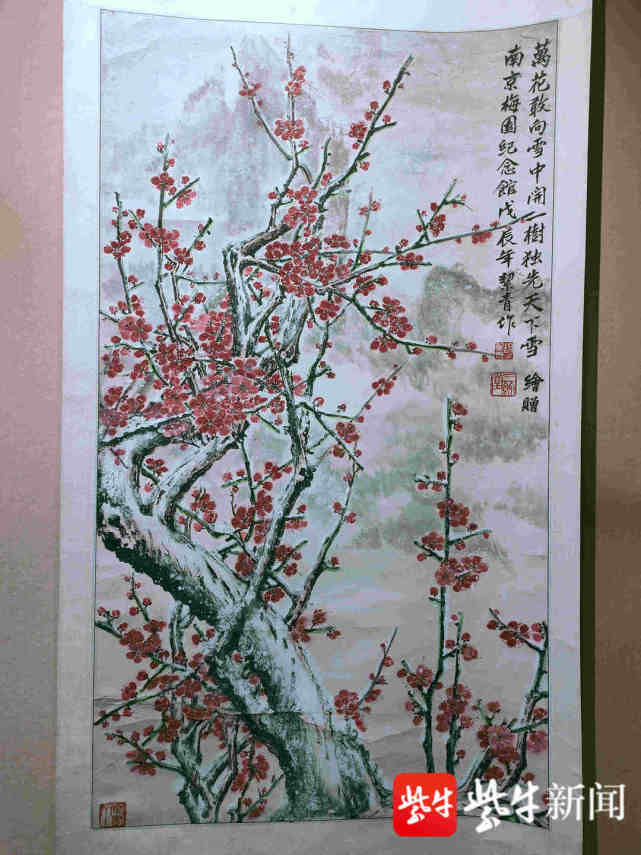 萬花敢向雪中開一樹独先天下雪 繪贈
南京梅园纪念館戊辰年絜青作
紫牛
紫牛新闻